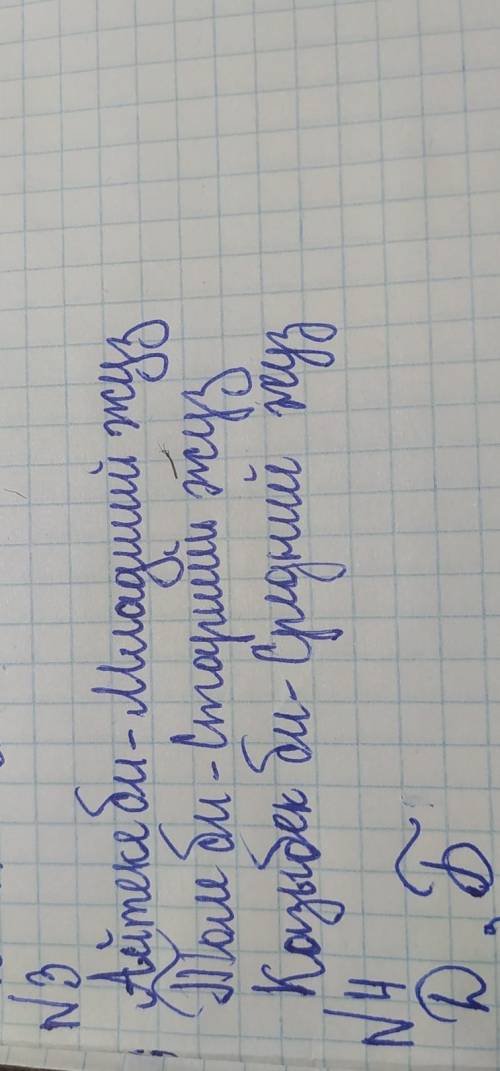 N3
Айтеке би - Младший жуз
Толе би - Старший жуз
Казыбек би - Средний жуз
N4
D, Б